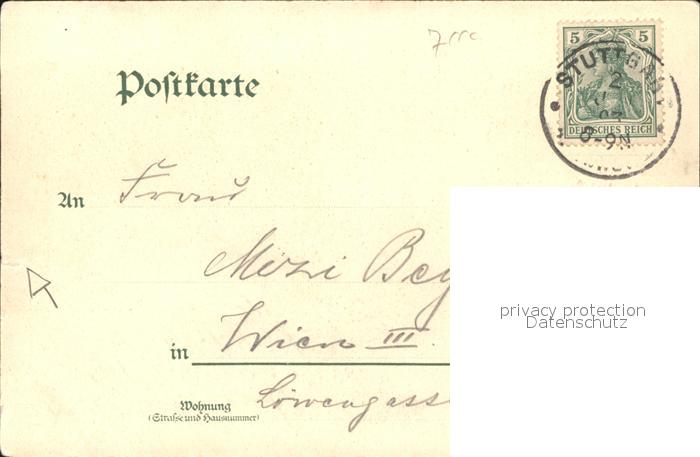 5 5
STUTTGART
2
03
8-9N
DEUTSCHES REICH
Postkarte
An Frau
Mizi
in Wien III.
Wohnung
(Straße und Hausnummer)
privacy protection
Datenschutz